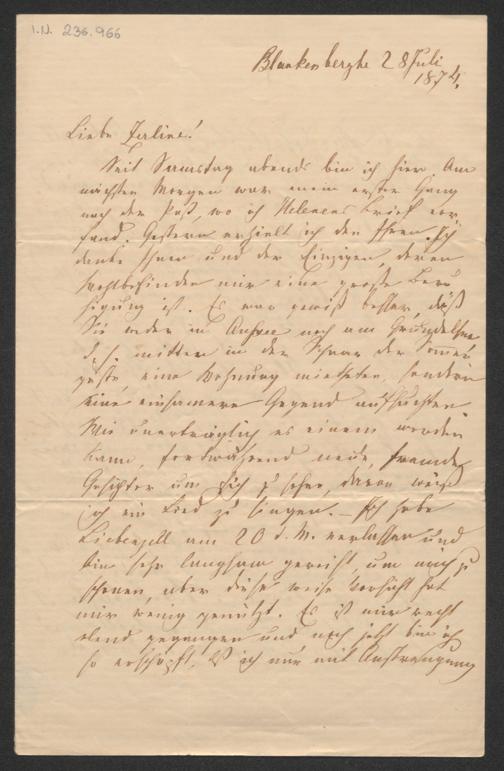 I.N. 236.966
Blankenberghe 28 Juli
1874.
Liebe Zerline!
Seit Samstag abends bin ich hier. Am
nächsten Morgen war mein erster Gang
nach der Post, wo ich Helenens Brief vor,
fand. Gestern erhielt ich den Ihren. Ich
danke Ihnen und der Einzigen, deren
Wohlbefinden mir eine große Beru
higung ist. Es war gewiß besser, daß
Sie weder in Aussee noch am Grundelsee
d. h. mitten in der Schaar der Sommer
gäste, eine Wohnung mietheten, sondern
eine einsamere Gegend aufsuchten.
Wie unerträglich es einem werden
kann, fortwährend neue, fremde
Gesichter um sich zu sehen, davon weiß
ich ein Lied zu singen. – Ich habe
Liebenzell am 20 d. M. verlassen und
bin sehr langsam gereist, um mich zu
schonen, aber diese weise Vorsicht hat
mir wenig genützt. Es ist mir recht
elend gegangen und noch jetzt bin ich
so erschöpft, daß ich nur mit Anstrengung